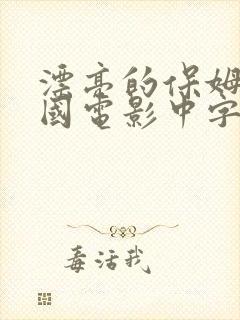 漂亮的保姆
國電影中字
毒活我